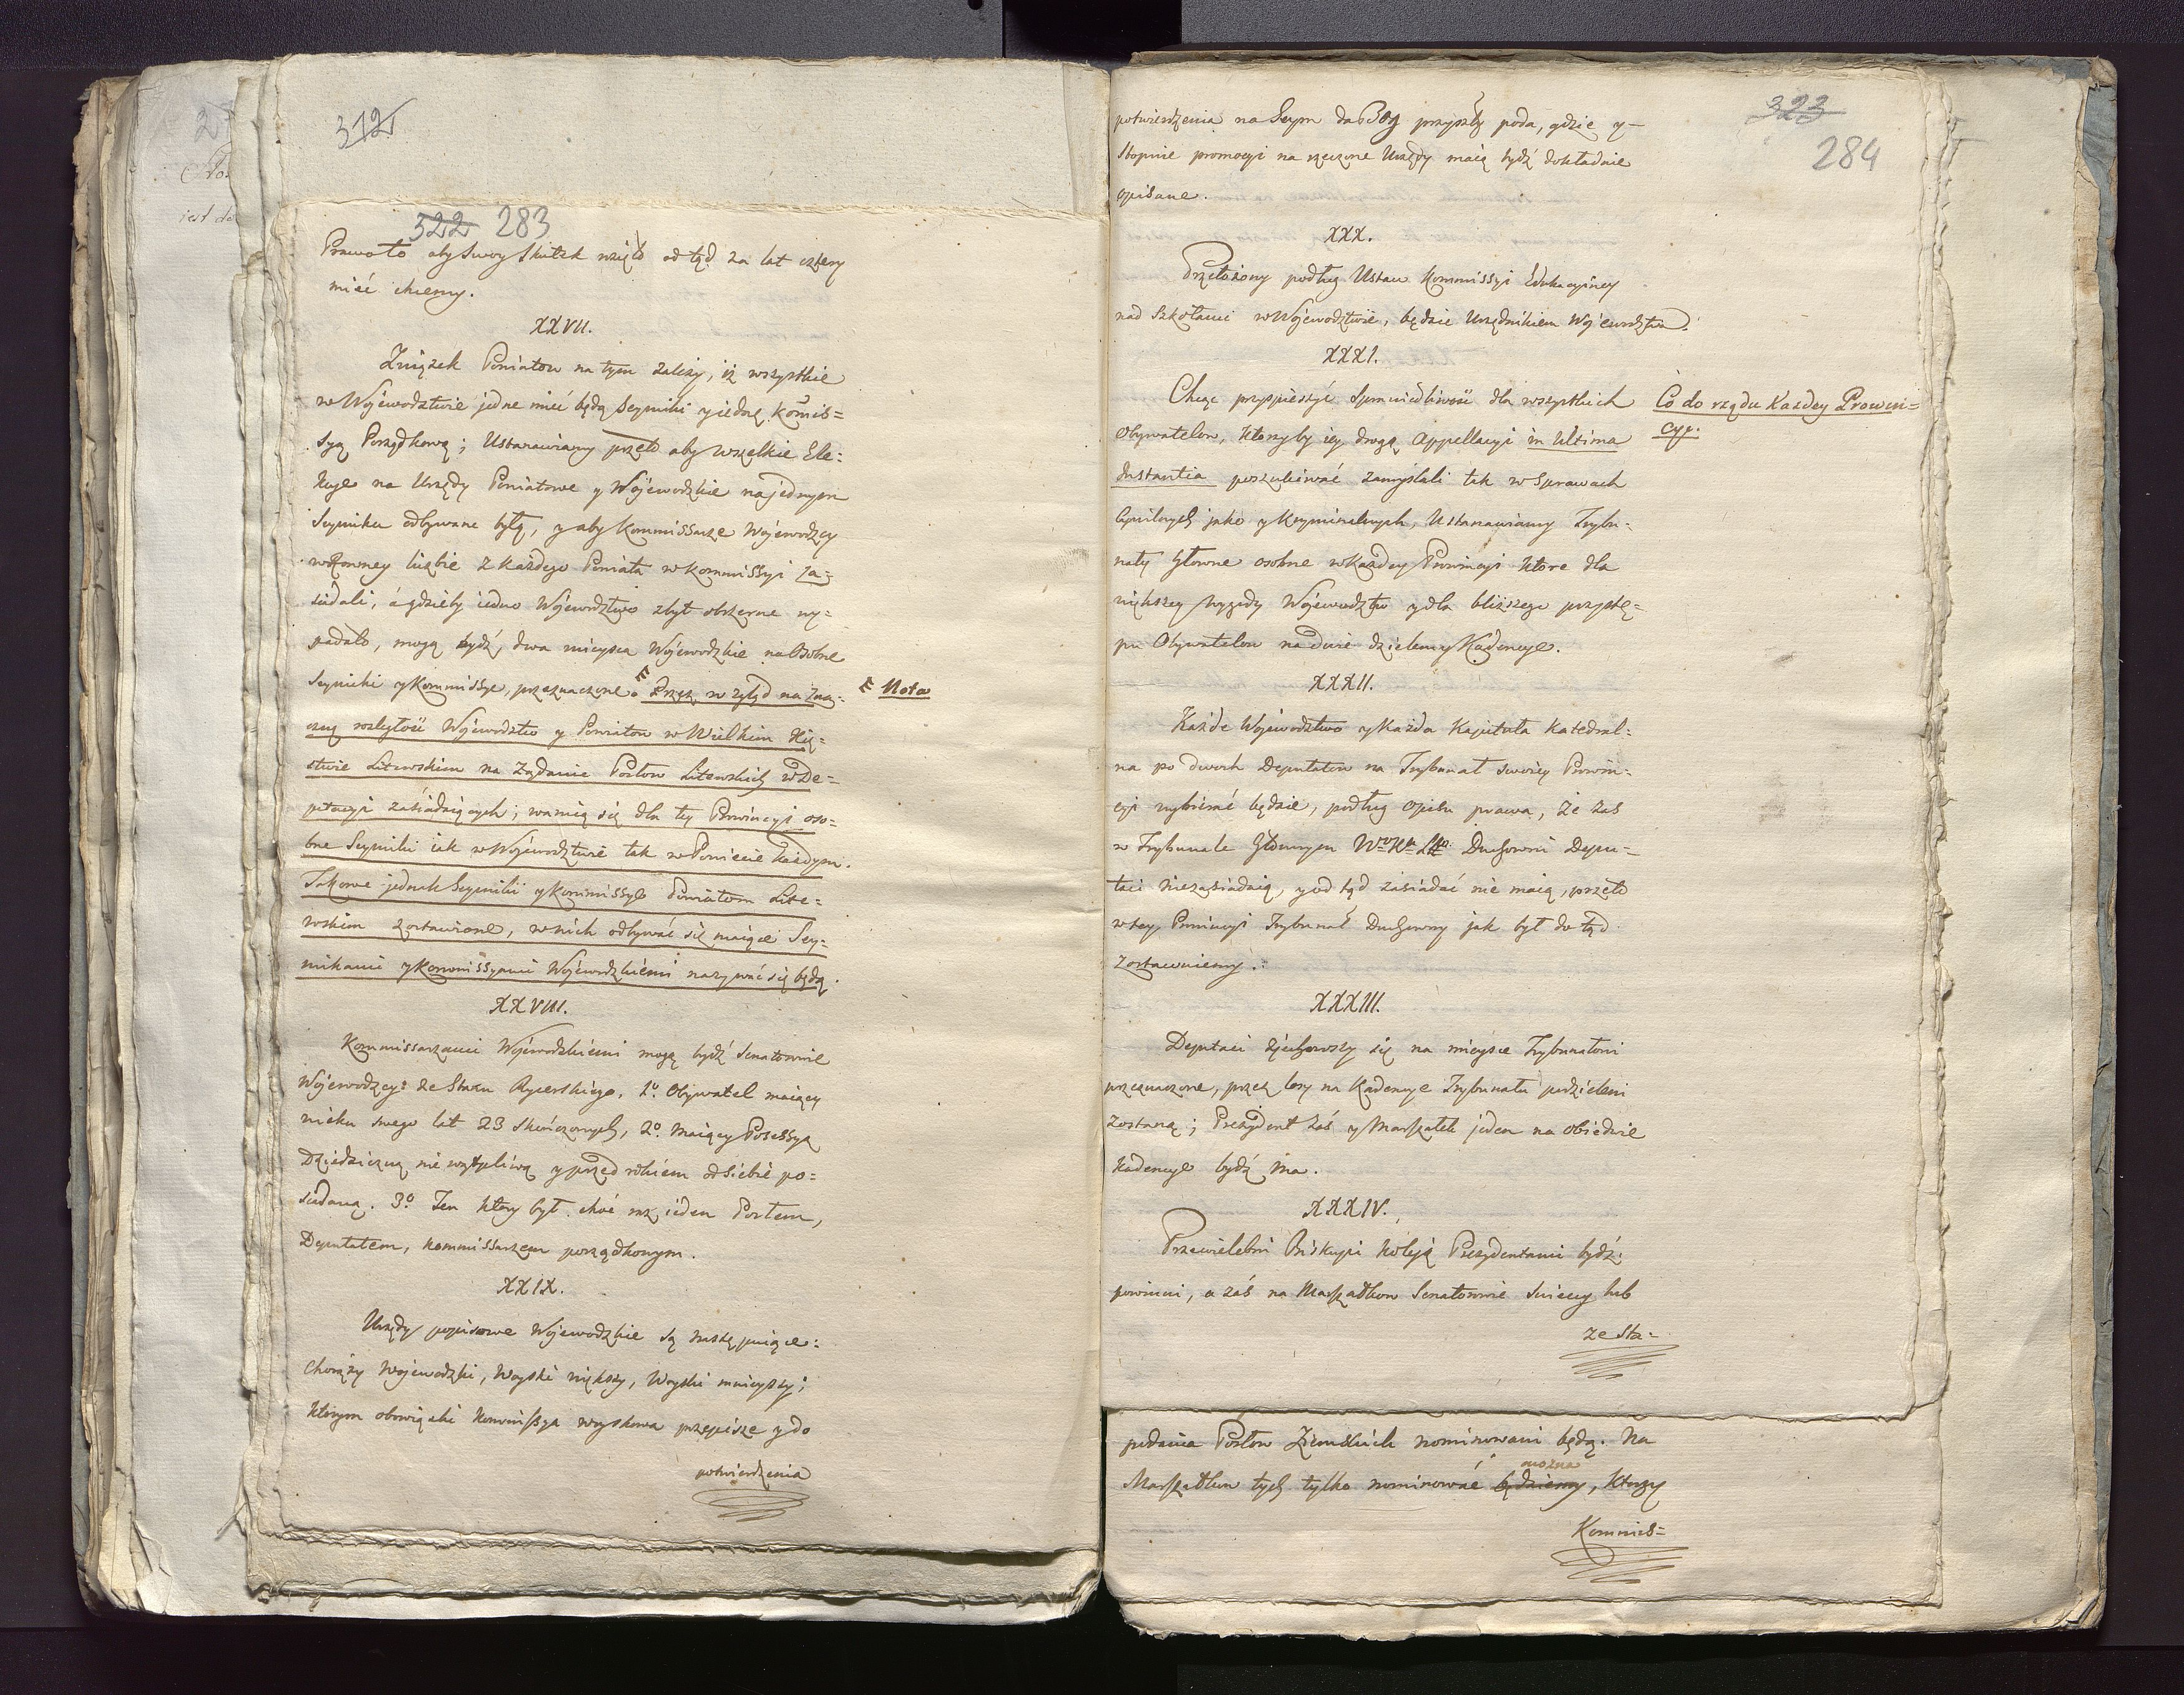 312
322 283
Prawo to aby swoy skutek wzięło od tąd za lat cztery
mieć chcemy.
XXVII.
Związek Powiatow na tym zależy, iż wszystkie
w Wojewodztwie jedne mieć będą Seymiki y iedną Komis=
syą Porządkową; Ustanawiamy przeto aby wszelkie Ele=
kcye na Urzędy Powiatowe y Wojewodzkie na jednym
Seymiku odbywane były, y aby Kommissarze Wojewodzcy
w Rowney liczbie z każdego Powiatu w Kommissyi za=
siadali, á gdzieby iedno Wojewodztwo zbyt obszerne wy=
padało, mogą bydź, dwa mieysca Wojewodzkie na osobne
Seymiki y Kommissye, przeznaczone. Przez wzgląd na zna= Nota
czną rozległość Wojewodztw y Powiatow w Wielkim Xię=
stwie Litewskim na żądanie Posłow Litewskich w De=
putacyi zasiadaiących; waruią się dla tey Prowincyi oso=
bne Seymiki iak w Wojewodztwie tak w Powiecie każdym.
Takowe jednak Seymiki y Kommissye Powiatom Lite=
wskim zostawione, w nich odbywać się maiące Sey=
mikami y Kommissyami Wojewodzkiemi nazywać się będą.
XXVIII.
Kommissarzami Wojewodzkiemi mogą bydź Senatorowie
Wojewodzcy: ze Stanu Rycerskiego, 1o. Obywatel maiący
wieku swego lat 23 skończonych, 2o. Maiący Possessyą
Dziedziczną nie wątpliwą y przed rokiem od siebie po=
siadaną. 3o Ten ktory był choć raz ieden Posłem,
Deputatem, Kommissarzem porządkowym.
XXIX.
Urzędy popisowe Wojewodzkie są następuiące:
Chorąży Wojewodzki, Woyski większy, Woyski mnieyszy;
ktorym obowiązki Kommissya woyskowa przepisze y do
potwierdzenia
323
284
potwierdzenia na Seym da Bog przyszły poda, gdzie y
stopnie promocyi na rzeczone Urzędy maią bydź dokładnie
opisane.
XXX.
Przełożony podług Ustaw Kommissyi Edukacyiney
nad Szkołami w Wojewodztwie, będzie Urzędnikiem Wojewodztwa.
XXXI.
Chcąc przyspieszyć Sprawiedliwość dla wszystkich Co do rządu Każdey Prowin=
Obywatelow, ktorzyby iey drogą Appellacyi in Ultima cyi.
Instantia poszukiwać zamyślali tak w Sprawach
Cywilnych jako y Kryminalnych, Ustanawiamy Trybu=
nały Głowne osobne w Każdey Prowincyi ktore dla
większey wygody Wojewodztw y dla bliższego przystę=
pu Obywatelow na dwie dzielemy Kadencye.
XXXII.
Każde Wojewodztwo y Każda Kapituła Katedral=
na po dwoch Deputatow na Trybunał swoiey Prowin=
cyi wybierać będzie, podług opisu prawa, że zaś
w Trybunale Głownym Wo Xa Lgo Duchowni Depu=
taci niezasiadaią, y od tąd zasiadać nie maią, przeto
w tey Prowincyi Trybunał Duchowny jak był do tąd
zostawuiemy.
XXXIII.
Deputaci zjechawszy się na mieysce Trybunałowi
przeznaczone, przez losy na Kadencye Trybunału podzieleni
zostaną; Prezydent zaś y Marszałek jeden na obiedwie
Kadencye bydź ma.
XXXIV.
Przewielebni Biskupi koleją Prezydentami bydź
powinni, a zaś na Marszałkow Senatorowie Swieccy lub
ze Sta=
podania Posłow Ziemskich nominowani będą. Na
można
Marszałkow tych tylko nominować będziemy, ktorzy
Kommis=